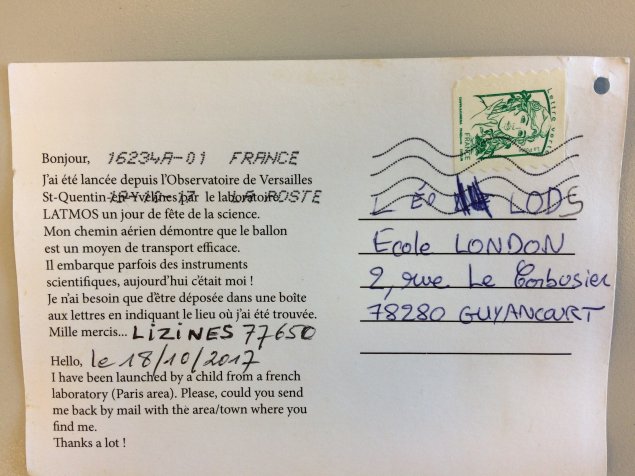 Bonjour, 16234A-01 FRANCE
J'ai été lancée depuis l'Observatoire de Versailles
St-Quentin en Yvelines par le laboratoire
LA POSTE
LATMOS un jour de fête de la science.
Mon chemin aérien démontre que le ballon
est un moyen de transport efficace.
Il embarque parfois des instruments
scientifiques, aujourd'hui c'était moi !
Je n'ai besoin que d'être déposée dans une boîte
aux lettres en indiquant le lieu où j'ai été trouvée.
Mille mercis... LIZINES 77650
Hello, le 18/10/2017
I have been launched by a child from a french
laboratory (Paris area). Please, could you send
me back by mail with the area/town where you
find me.
Thanks a lot !
Lettre verte
FRANCE
LODS
Ecole LONDON
2, rue Le Corbusier
78280 GUYANCOURT